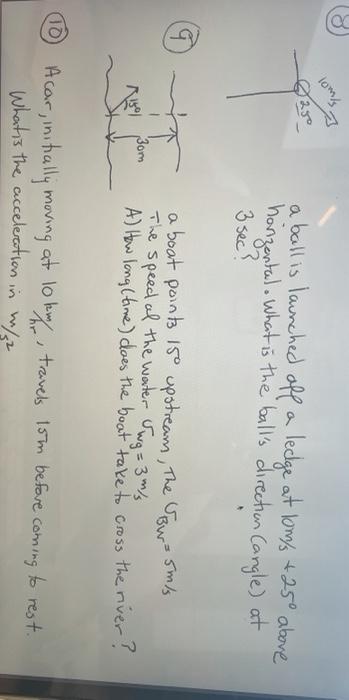 8
10m/s
25°
a ball is launched off a ledge at 10m/s + 25° above
horizontal. What is the ball's direction (angle) at
3 sec?
9
30m
15°
a boat points 15° upstream, The VBW = 5m/s
The speed of the water Vwg = 3m/s
A) How long (time) does the boat take to cross the river?
10 A car, initially moving at 10 km/hr, travels 15m before coming to rest.
What is the acceleration in m/s²